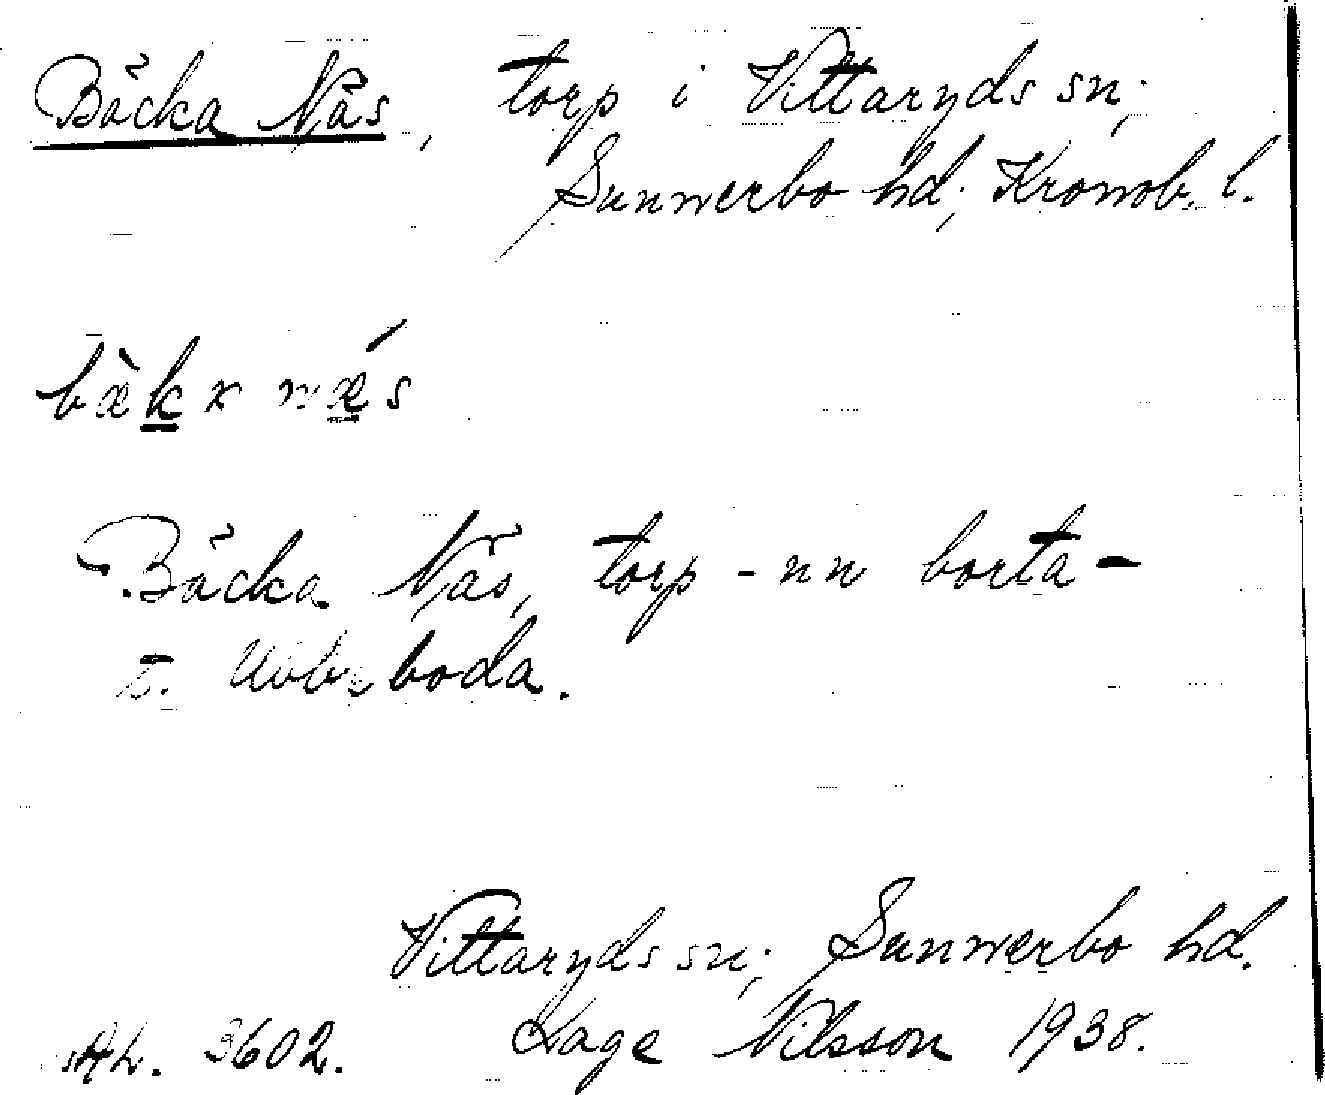 Bäcka Näs, torp i Vittaryds sn;
Sunnerbo hd; Kronob. l.
bæ̀kx nǽs
Bäcka Näs, torp -nn borta-
t. boda.
Vittaryds sn; Sunnerbo hd.
AL. 3602. Kage Nilsson 1938.